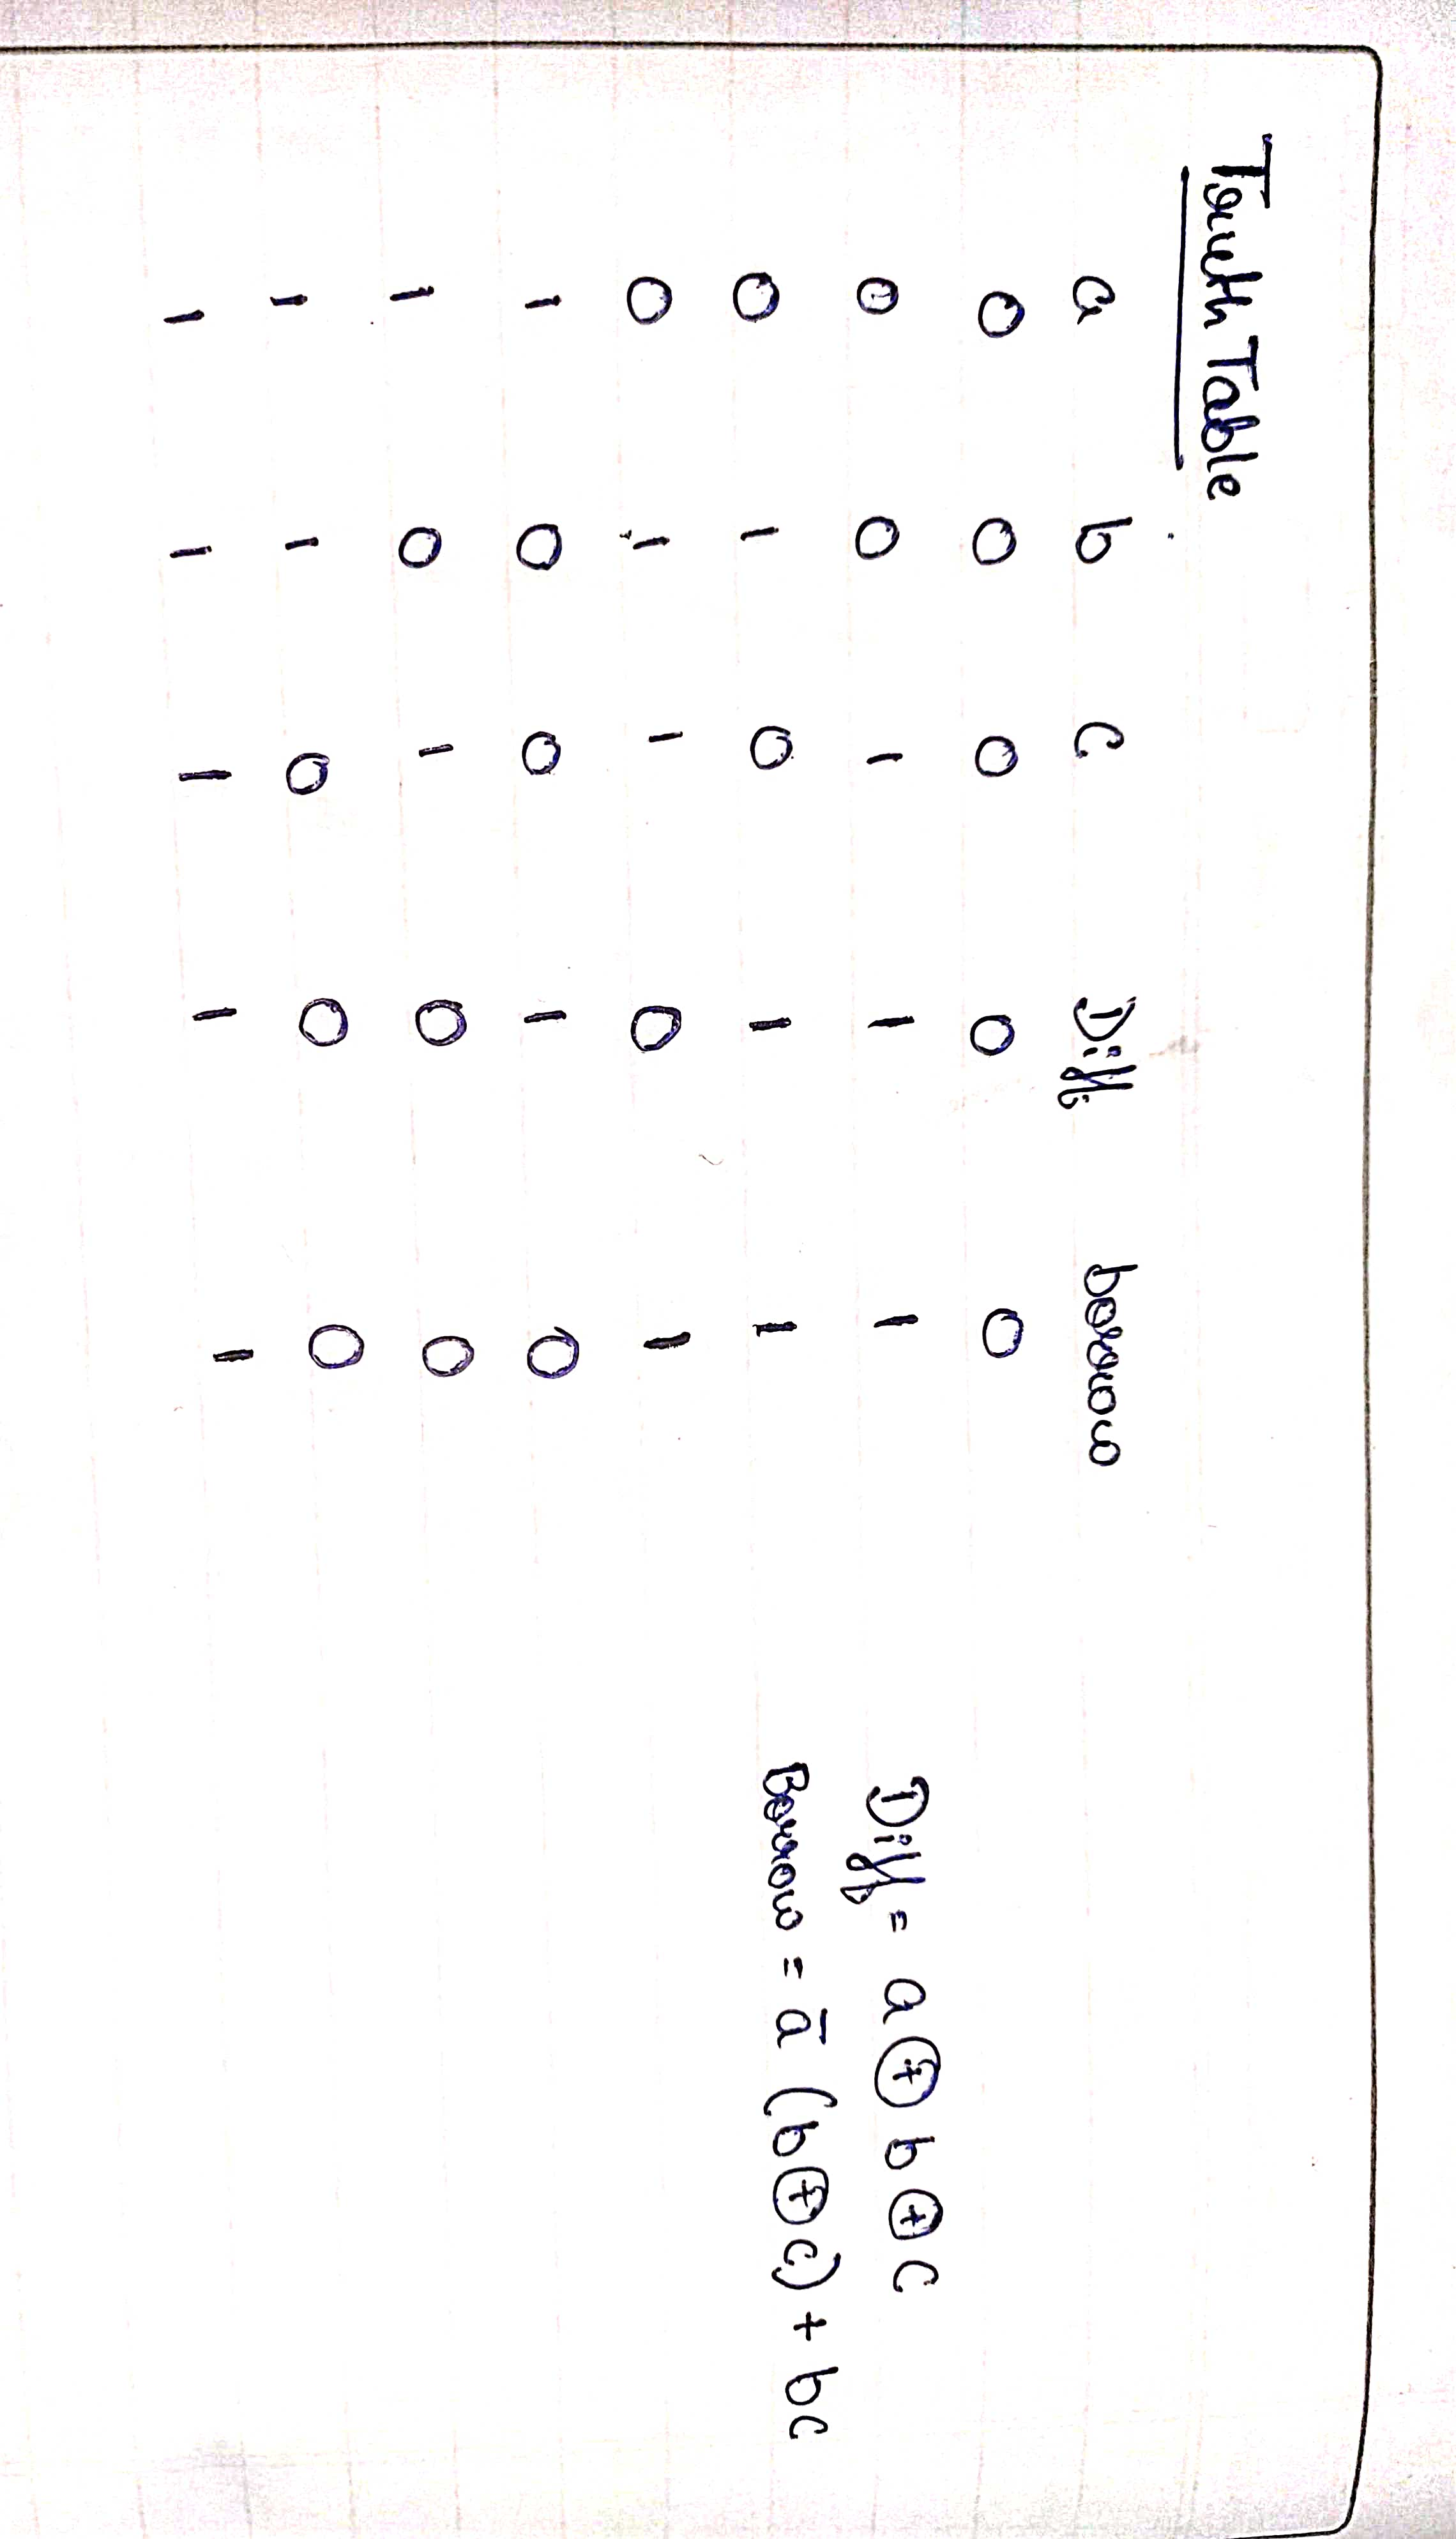 Truth Table
a b c Diff borrow
0 0 0 0 0
0 0 1 1 1
0 1 0 1 1
0 1 1 0 1
1 0 0 1 0
1 0 1 0 0
1 1 0 0 0
1 1 1 1 1
Diff = a ⊕ b ⊕ c
Borrow = ā (b ⊕ c) + bc